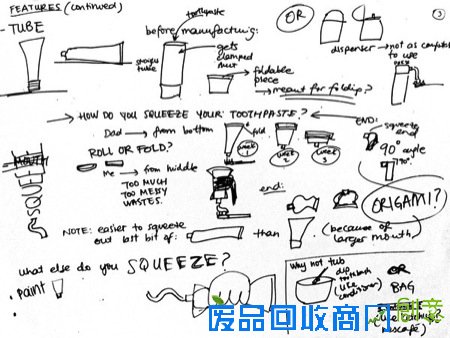 FEATURES (continued)
③
- TUBE
toothpaste
before manufacturing:
OR
straight tube
gets
clamped
shut
foldable
piece
→ meant for foldip?
dispenser → not as comfortable
to use
→ HOW DO YOU SQUEEZE YOUR TOOTHPASTE? ←
Dad → from bottom
fold
week 1
week 2
week 3
END:
squeeze
end
90° angle
90°
ROLL OR FOLD?
Me → from middle
TOO MUCH
TOO MESSY
WASTES.
MOUTH
SQUEEZE
end:
ORIGAMI?
NOTE: easier to squeeze
out last bit of:
than
(because of
larger mouth)
What else do you SQUEEZE?
• Paint
Why not tub
dip
toothbrush
(like
conditioner)
OR
BAG
废品回收商网
创意